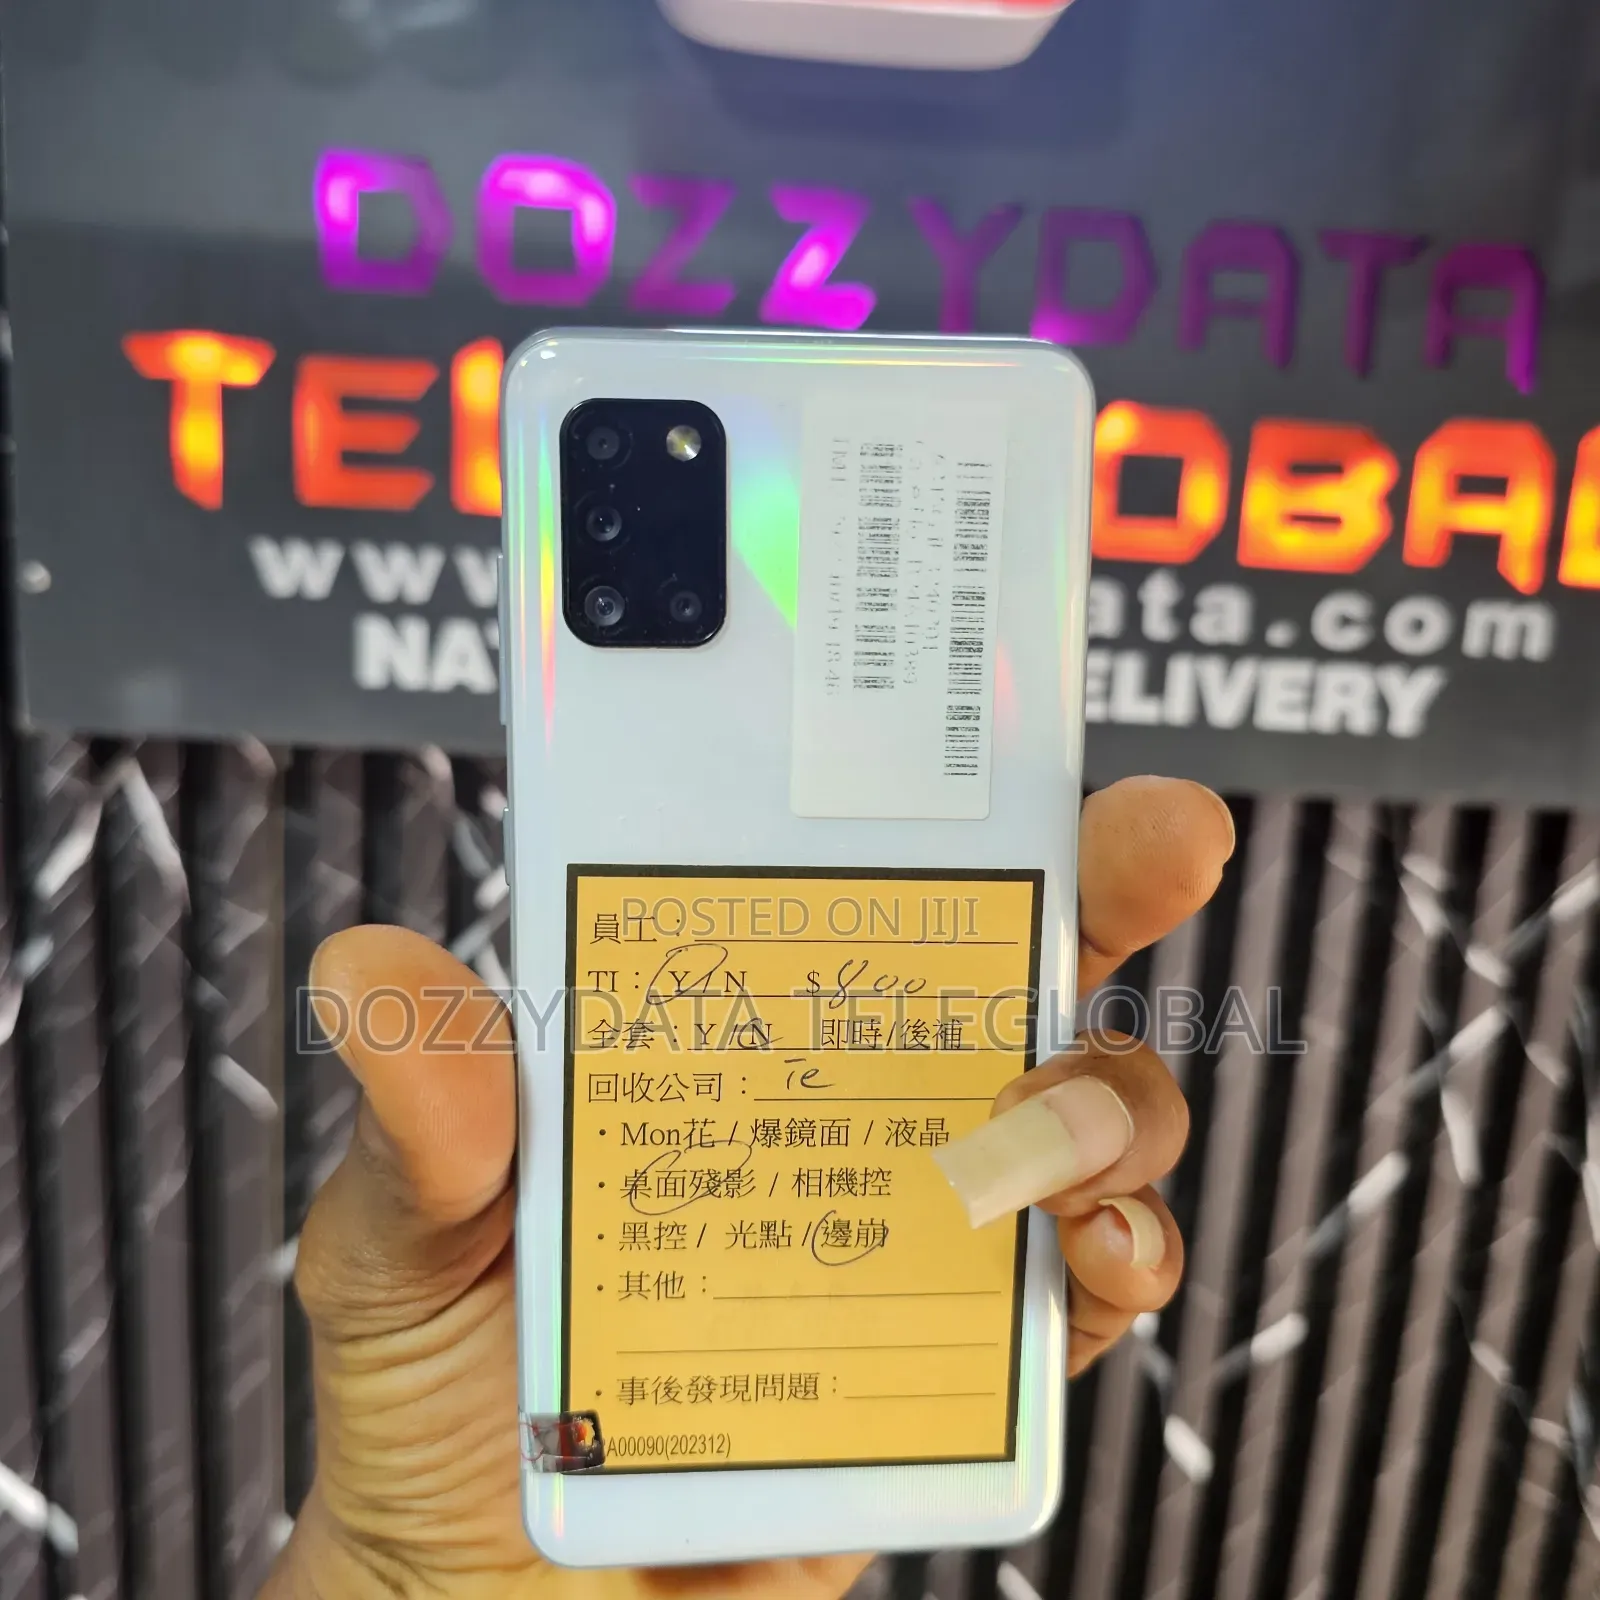 DOZZYDATA
TEL OBAL
www ata.com
NA ELIVERY
POSTED ON JIJI
員工：
TI： Y/N $800
DOZZYDATA TELEGLOBAL
全套：Y/N 即時/後補
回收公司： Te
・Mon花 / 爆鏡面 / 液晶
・桌面殘影 / 相機控
・黑控 / 光點 / 邊崩
・其他：
・事後發現問題：
A00090(202312)